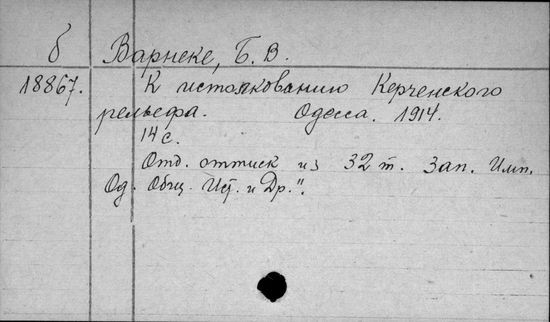 б Варнеке, Б. В.
18867. К истолкованию Керченского
рельефа. Одесса. 1914.
14 с.
Отд. оттиск из 32 т. Зап. Имп.
Од. Общ. Ист. и Др.".